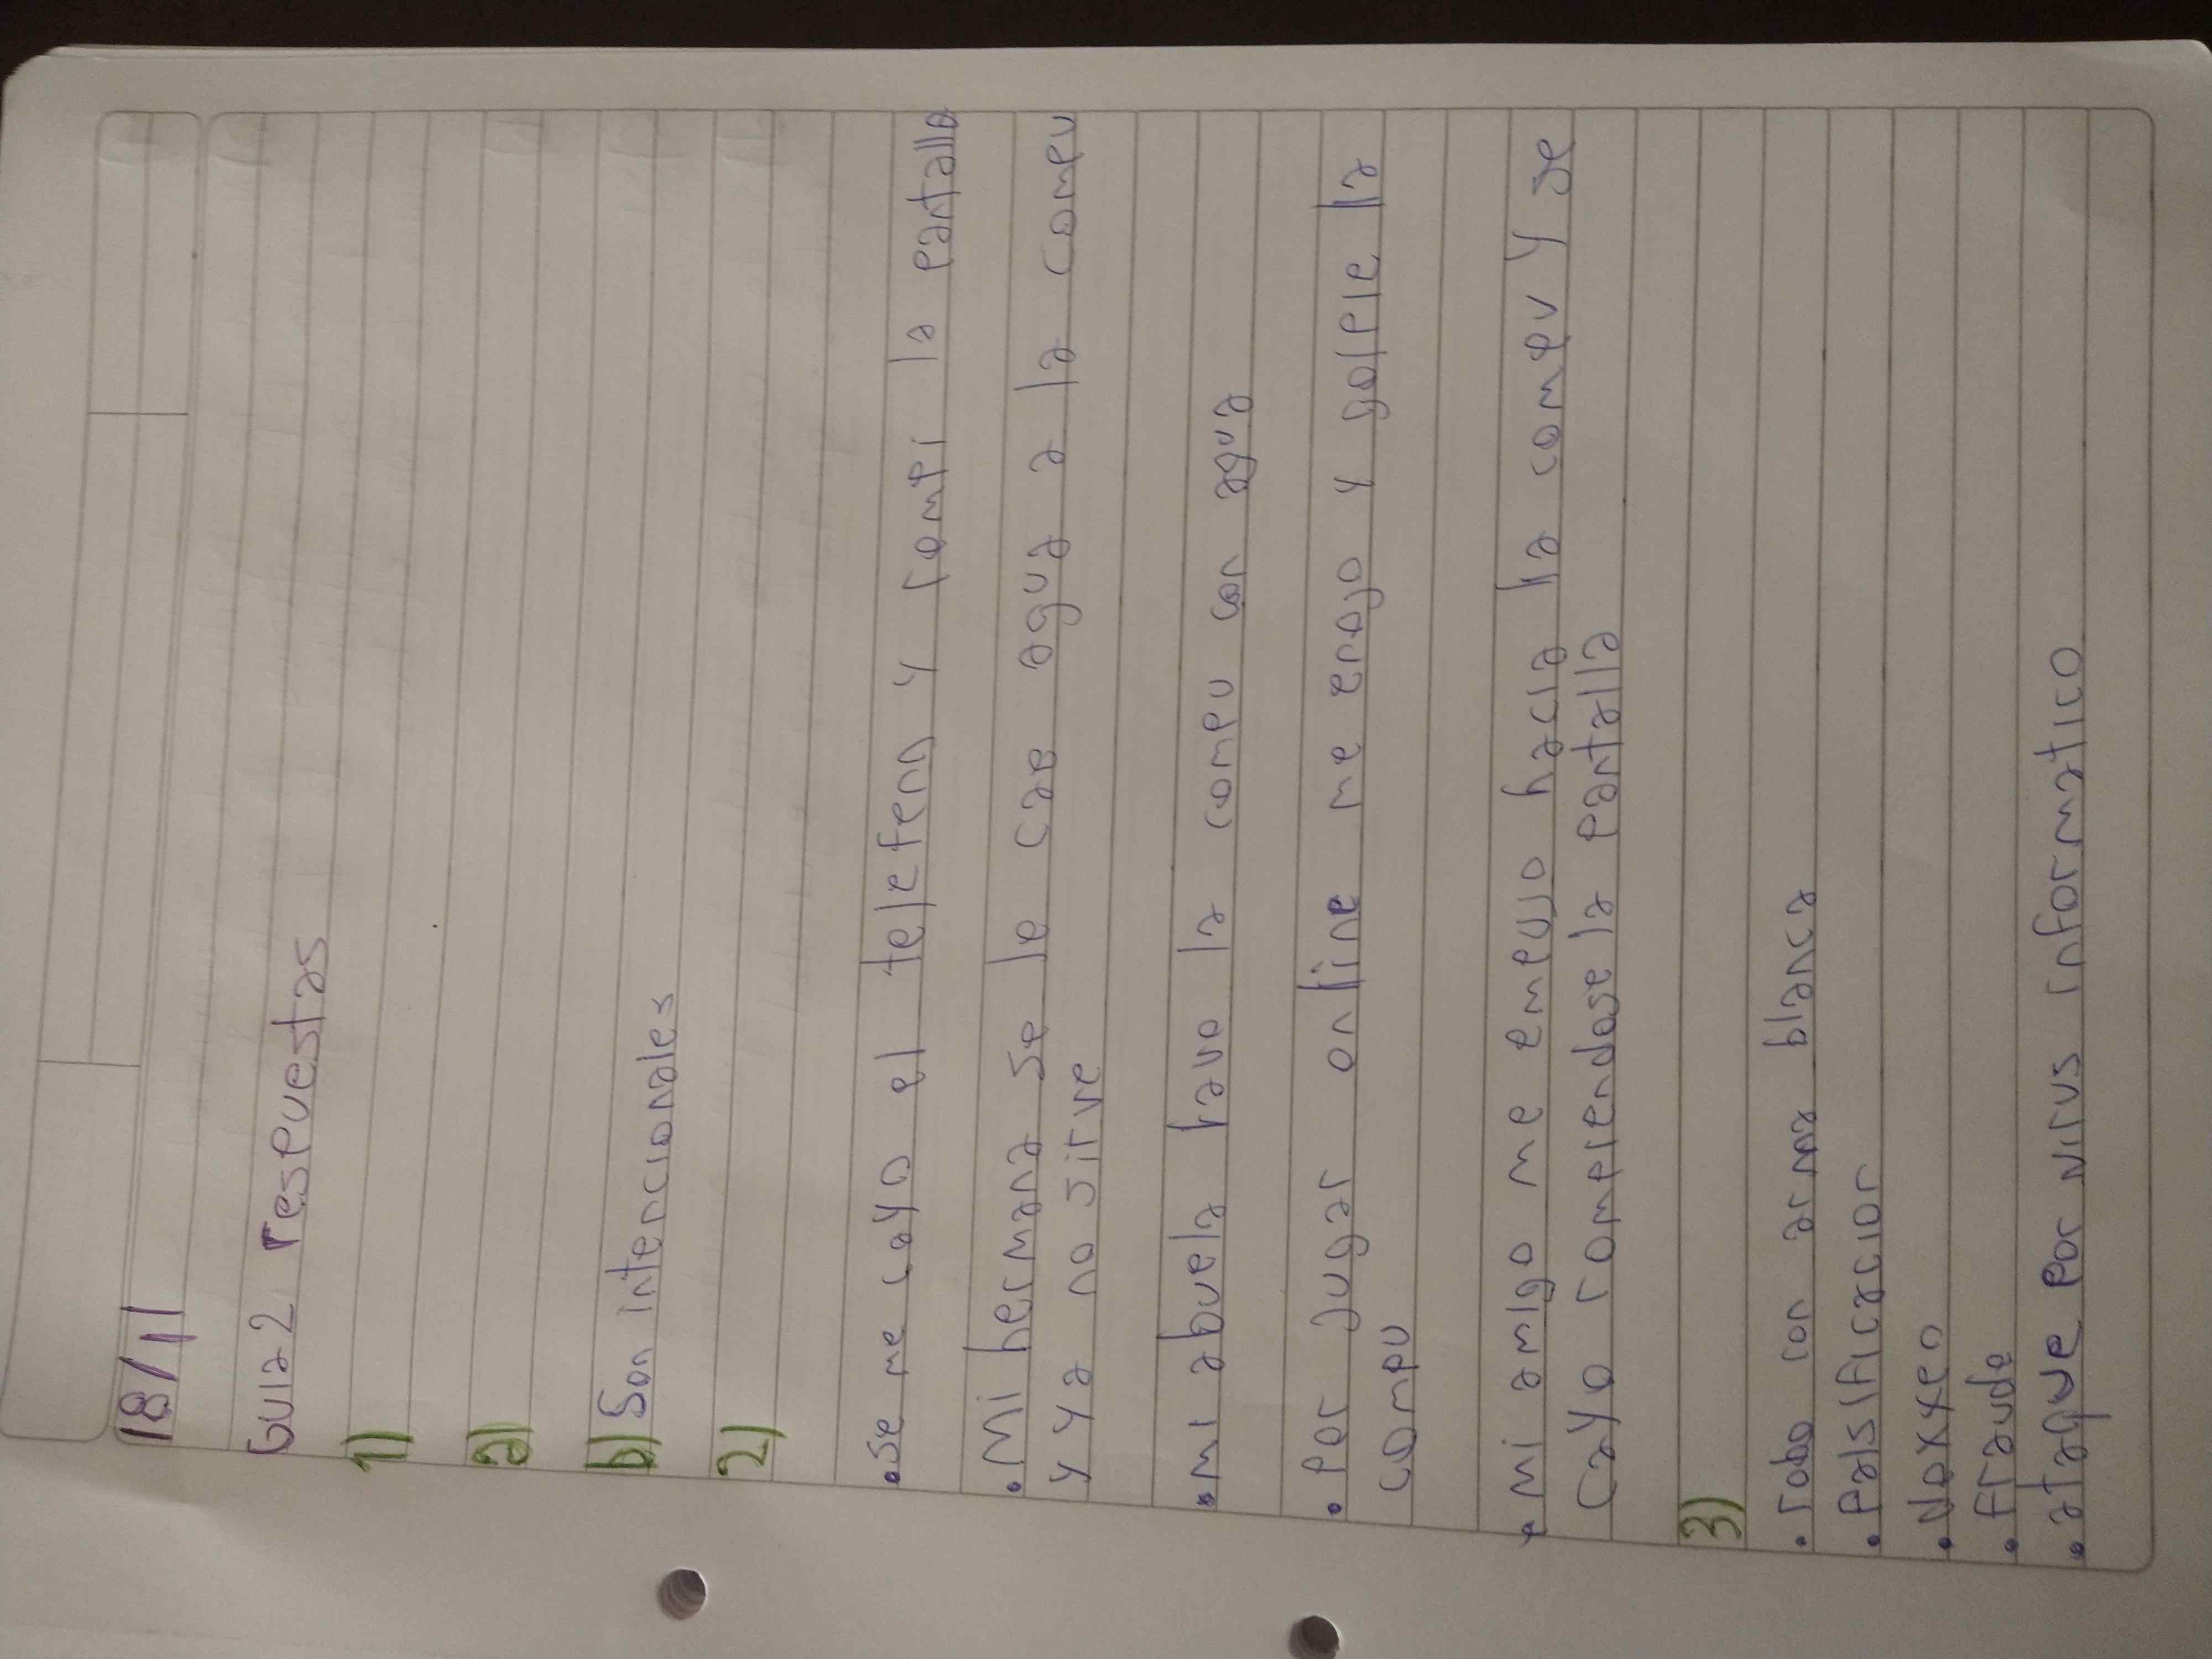 18/11
Guia 2 respuestas
1)
a)
b) Son intencionales
2)
• se me cayo el telefeno y rompi la pantalla
• Mi hermana se le cae agua a la compu
y ya no sirve
• mi abuela lavo la compu con agua
• Por Jugar online me enojo y golpie la
compu
• mi amigo me empujo hacia la compu y se
cayo rompiendose la pantalla
3)
• robo con arma blanca
• Falsificacion
• Fraude
• ataque por virus informatico